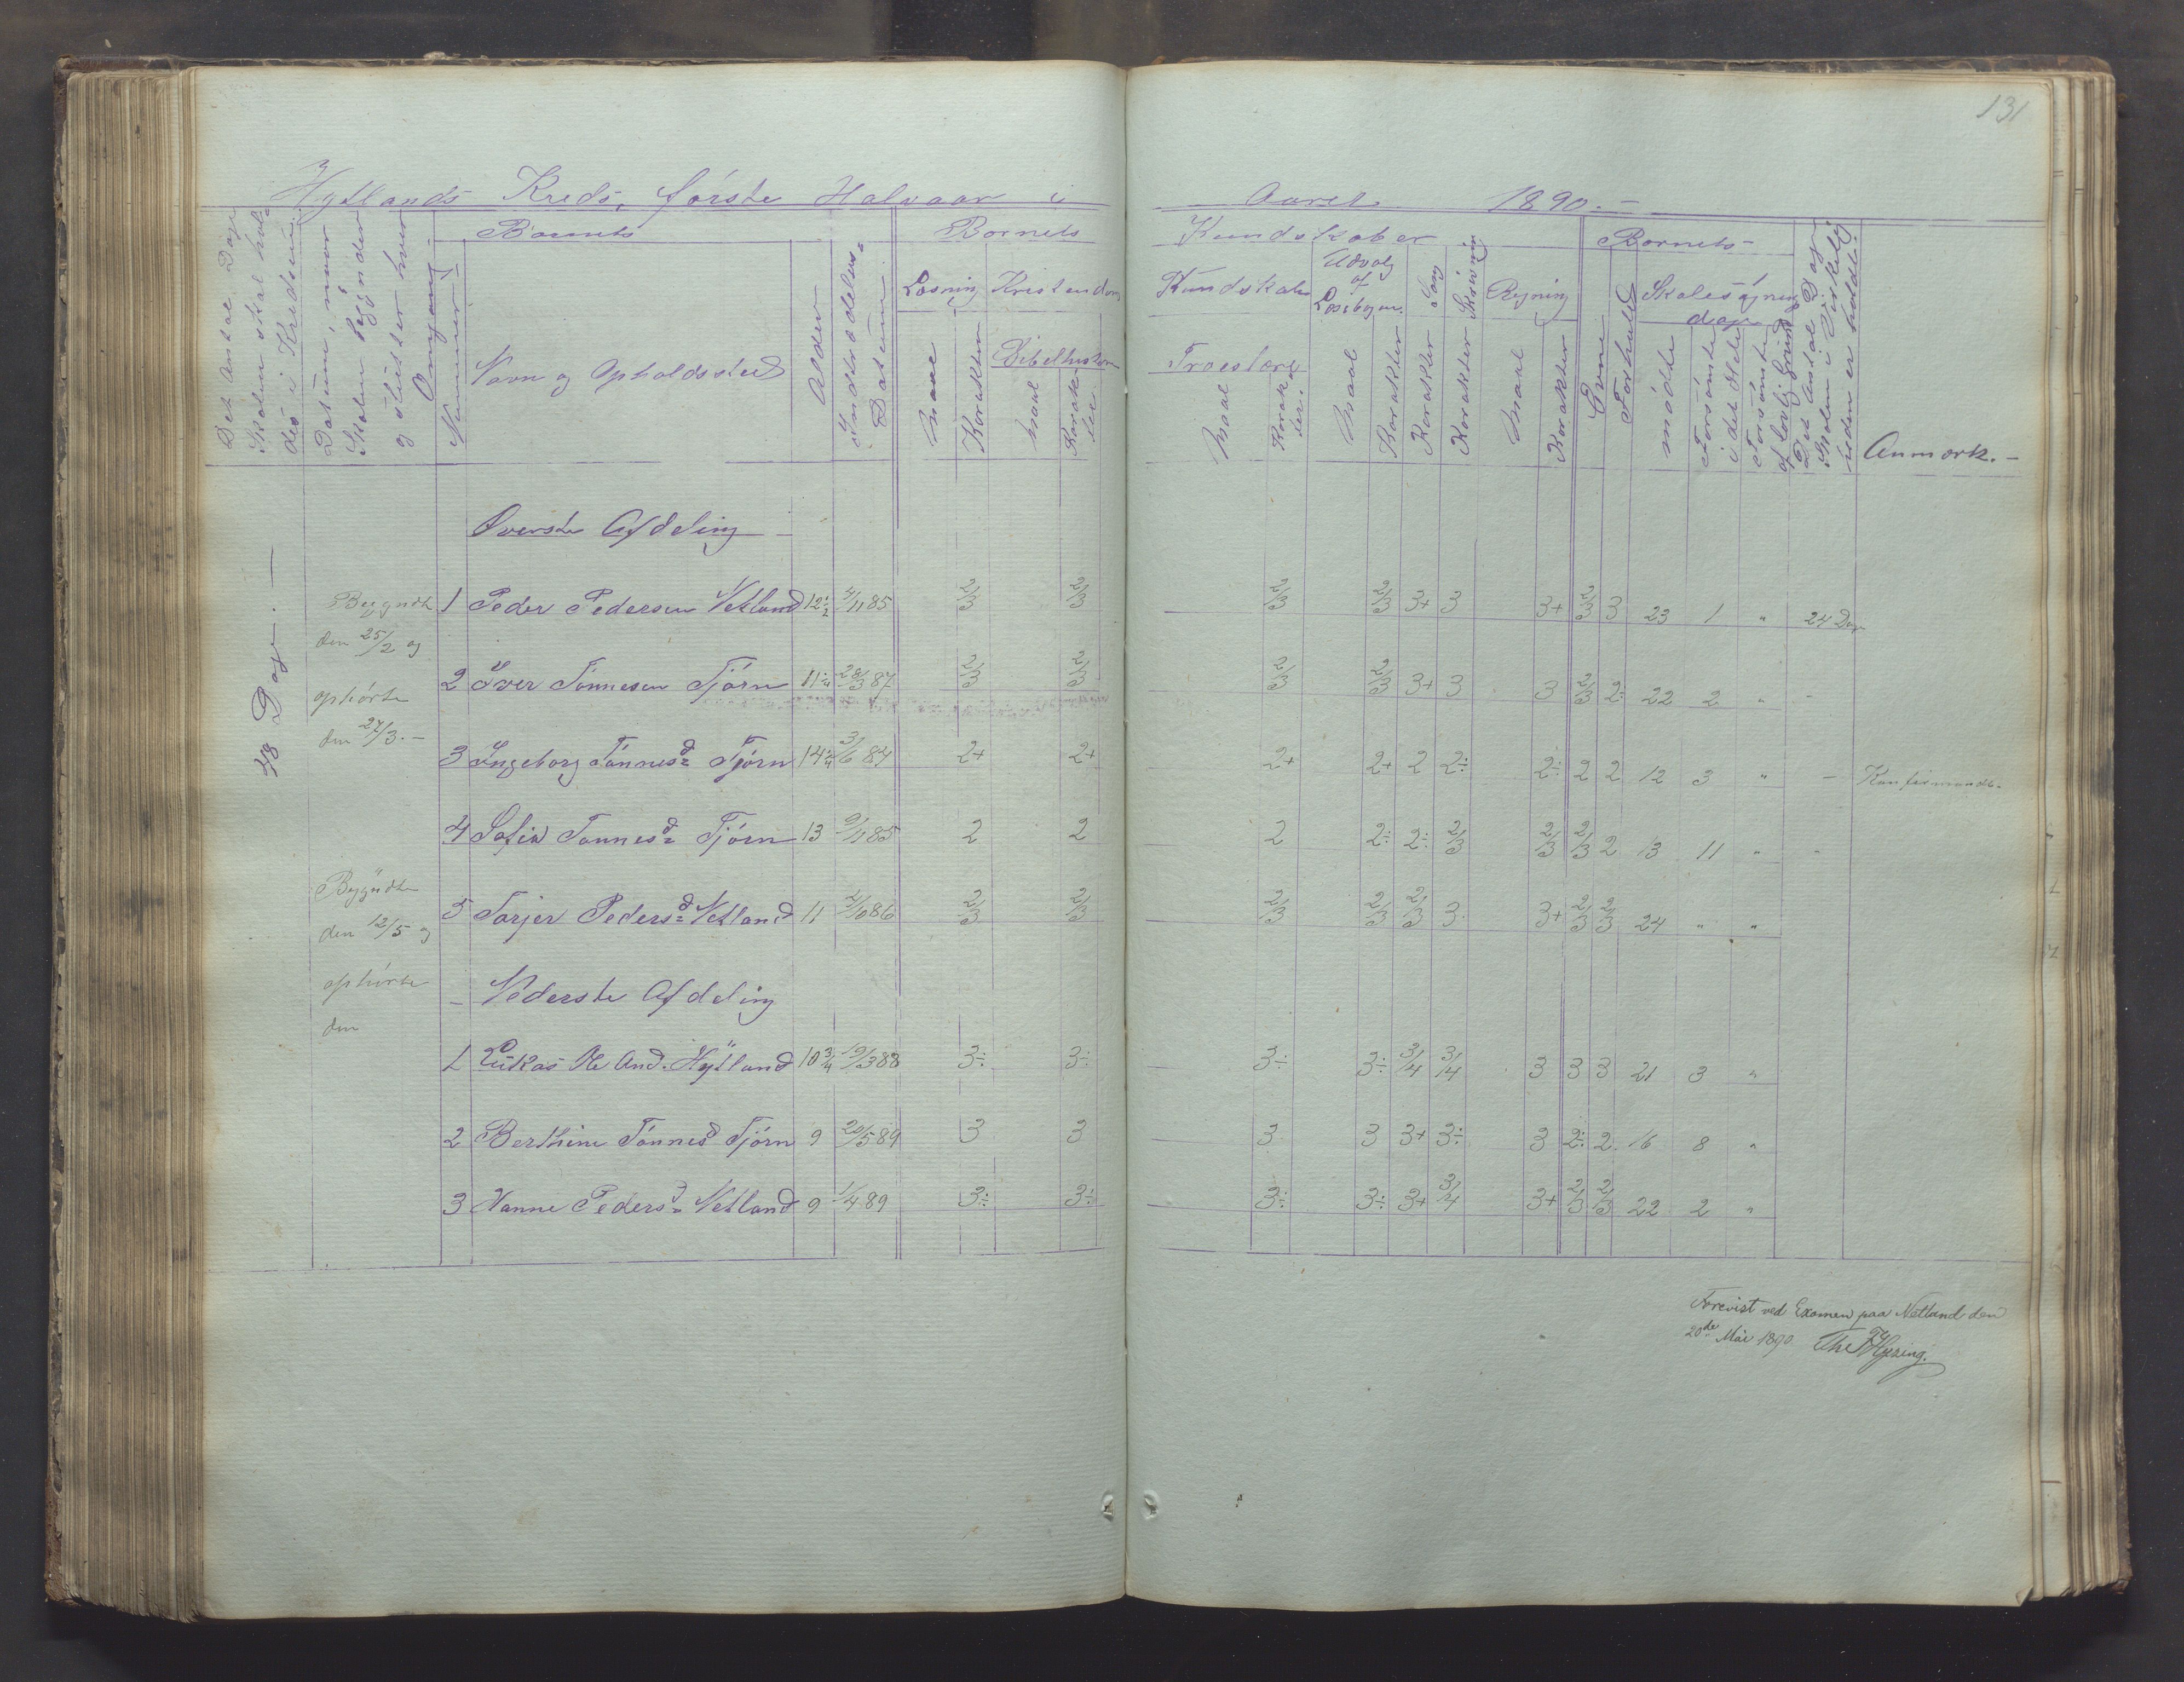 131
Hylland's Kreds, første Halvaar i Aaret 1890.-
Det Antal Dage Skolen skal holdes i Kredsen.
Datum, naar Skolen begynder og slutter hver Omgang.-
Nummer.-
Barnets
Navn og Opholdssted
Alder
Indtrædelses- Datum.
Barnets Kundskaber
Læsning
Maal
Karakter
Kristendoms Kundskab
Bibelhistorie
Maal
Karakter
Troeslære
Maal
Karakter.
Udvalg af Læsebogen.
Maal
Karakter
Sang
Karakter
Skrivning
Karakter
Regning
Maal
Karakter
Barnets-
Evne
Forhold
Skolesøgningsdage
mødte
Forsømte i det Hele
Forsømte af lovlig Grund
Det Antal Dage Skolen i Virkelig heden er holdt.
Anmærk.-
48 Dage.-
Begyndte den 25/2 og ophørte den 27/3.-
Begyndte den 12/5 og ophørte den
Øverste Afdeling
1 Peder Pedersen Netland 12 1/2 4/11 85 2/3 2/3 2/3 2/3 3+ 3 3+ 2/3 3 23 1 " 24 Dage
2 Iver Tønnesen Tjørn 11 1/4 28/3 87 2/3 2/3 2/3 2/3 3+ 3 3 2/3 2÷ 22 2 " -
3 Ingeborg Tønnesd Tjørn 14 1/4 3/6 84 2+ 2+ 2+ 2+ 2 2÷ 2÷ 2 2 12 3 " - Konfirmands.
4 Sofia Tønnesd Tjørn 13 9/11 85 2 2 2 2÷ 2÷ 2/3 2/3 2/3 2 13 11 " -
5 Tarjer Pedersd Netland 11 4/10 86 2/3 2/3 2/3 2/3 2/3 3 3+ 2/3 2/3 24 " "
- Nederste Afdeling
1 Lukas Ole And. Hylland 10 3/4 19/3 88 3÷ 3÷ 3÷ 3÷ 3/4 3/4 3 3 3 21 3 "
2 Berthine Tønnesd Tjørn 9 20/5 89 3 3 3 3 3+ 3÷ 3 2÷ 2 16 8 "
3 Hanne Pedersd Netland 9 1/4 89 3÷ 3÷ 3÷ 3÷ 3+ 3/4 3+ 2/3 2/3 22 2 "
Forevist ved Examen paa Netland den
20de Mai 1890.